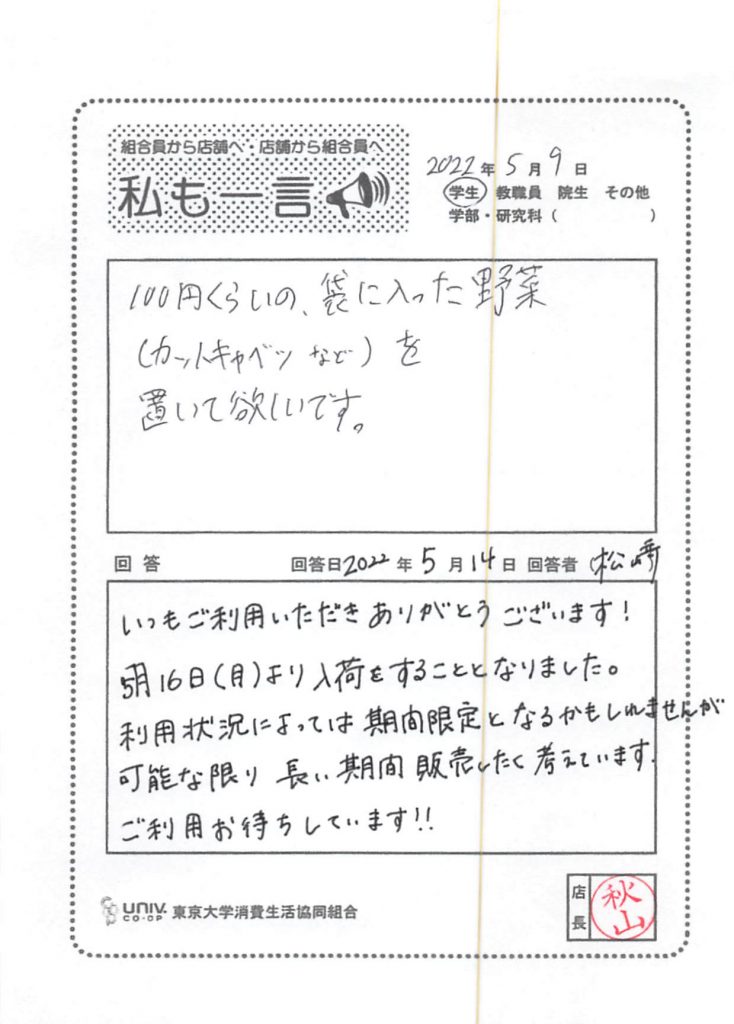 組合員から店舗へ・店舗から組合員へ
私も一言
2022年5月9日
学生 教職員 院生 その他
学部・研究科( )
100円くらいの、袋に入った野菜
(カットキャベツ など)を
置いて欲しいです。
回答 回答日2022年5月14日 回答者 松崎
いつもご利用いただきありがとうございます!
5月16日(月)より入荷をすることとなりました。
利用状況によっては期間限定となるかもしれませんが
可能な限り 長い期間 販売したく考えています.
ご利用お待ちしています!!
UNIV. CO-OP 東京大学消費生活協同組合
店長 秋山